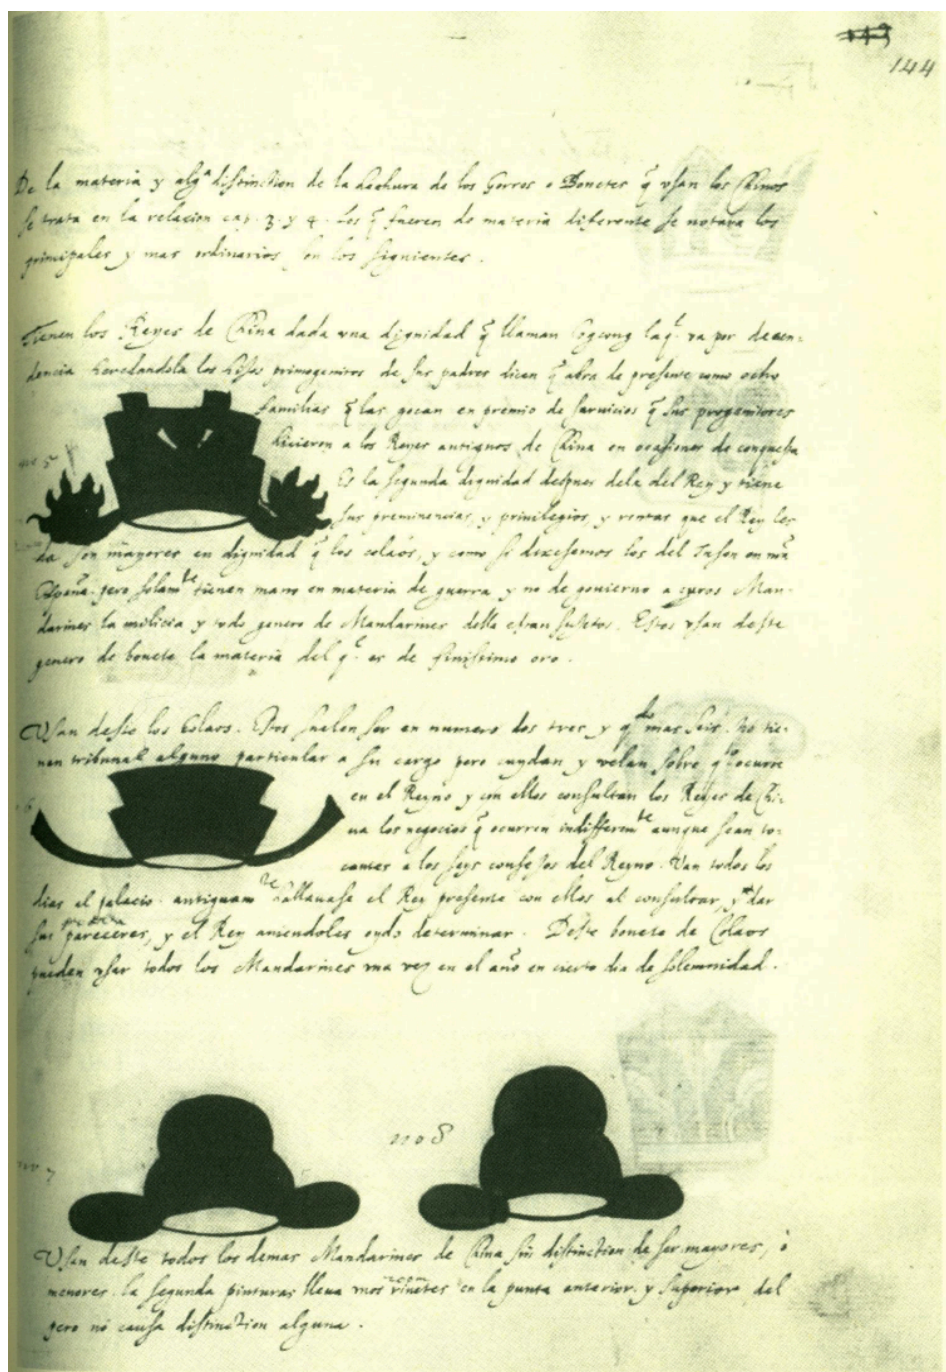 144
De la materia y algª distinction de la hechura de los Gorros o Bonetes q̃ vsan los Chinos
se trata en la relacion cap. 3. y 4. los q̃ fueren de materia diferente se notara los
principales y mas ordinarios son los siguientes.
Tienen los Reyes de China dada vna dignidad q̃ llaman Cogcong laq̃l va por decen-
dencia heredandola los hijos primogenitos de sus padres dicen q̃ abra de presente como ocho
familias q̃ las gocan en premio de seruicios q̃ sus progenitores
hicieron a los Reyes antiguos de China en ocasiones de conquista
Es la segunda dignidad despues dela del Rey y tiene
sus preminencias, y privilegios, y rentas que el Rey les
da son mayores en dignidad q̃ los colaos, y como si dixesemos los del Tuson en nrã
España. pero solamte tienen mano en materia de guerra y no de govierno a cuyos Man-
darines la milicia y todo genero de Mandarines della estan sujetos. Estos vsan deste
genero de bonete la materia del q̃l es de finissimo oro.
Vsan deste los Colaos. Estos suelen ser en numero dos tres, y qdo mas seis. no tie-
nen tribunal alguno particular a su cargo pero cuydan y velan sobre qto ocurre
en el Reyno y con ellos consultan los Reyes de Chi-
na los negocios q̃ ocurren indifferemte aunque sean to-
cantes a los seys consejos del Reyno. Van todos los
dias al palacio. antiguamte hallauase el Rey presente con ellos al consultar, y dar
sus pareceres, y el Rey auiendoles oydo determinar. Deste bonete de Colaos
pueden vsar todos los Mandarines vna vez en el año en cierto dia de solemnidad.
nº 8
Vsan deste todos los demas Mandarines de China sin distinction de ser mayores, o
menores. la segunda pintura lleua vnos en la punta anterior y superior del
pero no causa distinction alguna.